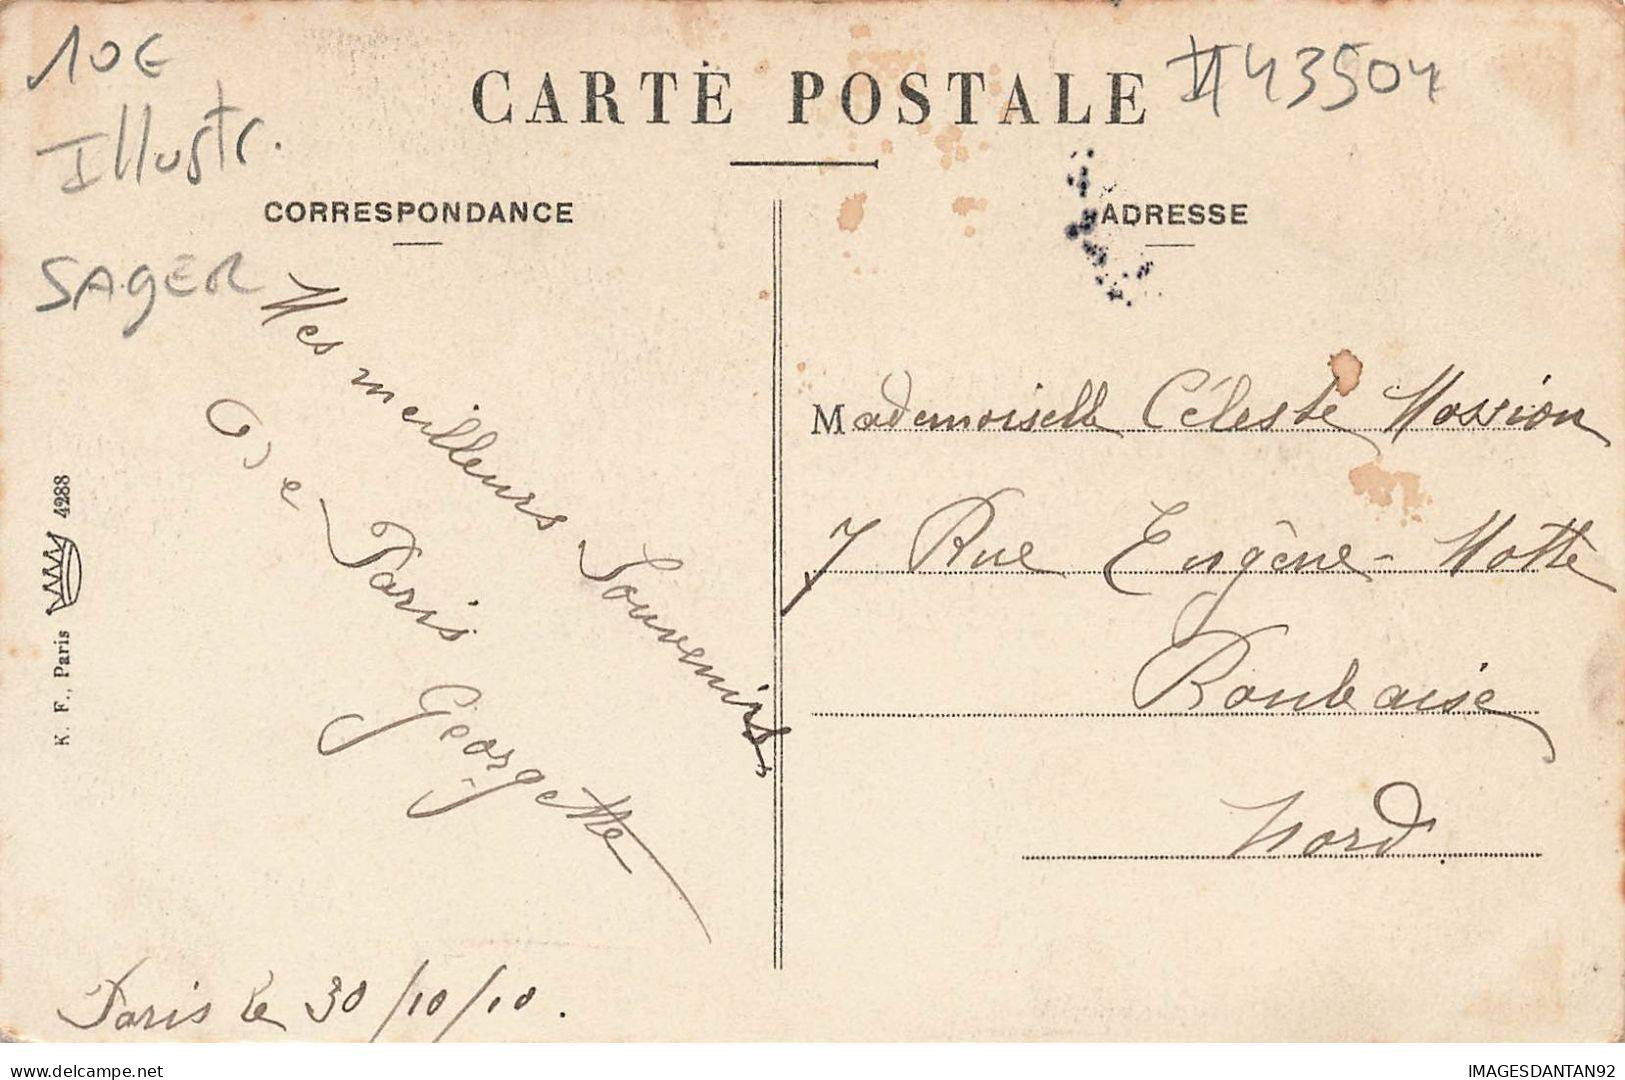 10€
Illustr.
SAGER
CARTE POSTALE
#43504
CORRESPONDANCE
ADRESSE
Mes meilleurs Souvenirs
De Paris
Georgette
Paris le 30/10/10.
Mademoiselle Céleste Mossion
7 Rue Eugène-Motte
Roubaise
Nord.
K. F., Paris 4288
IMAGESDANTAN92